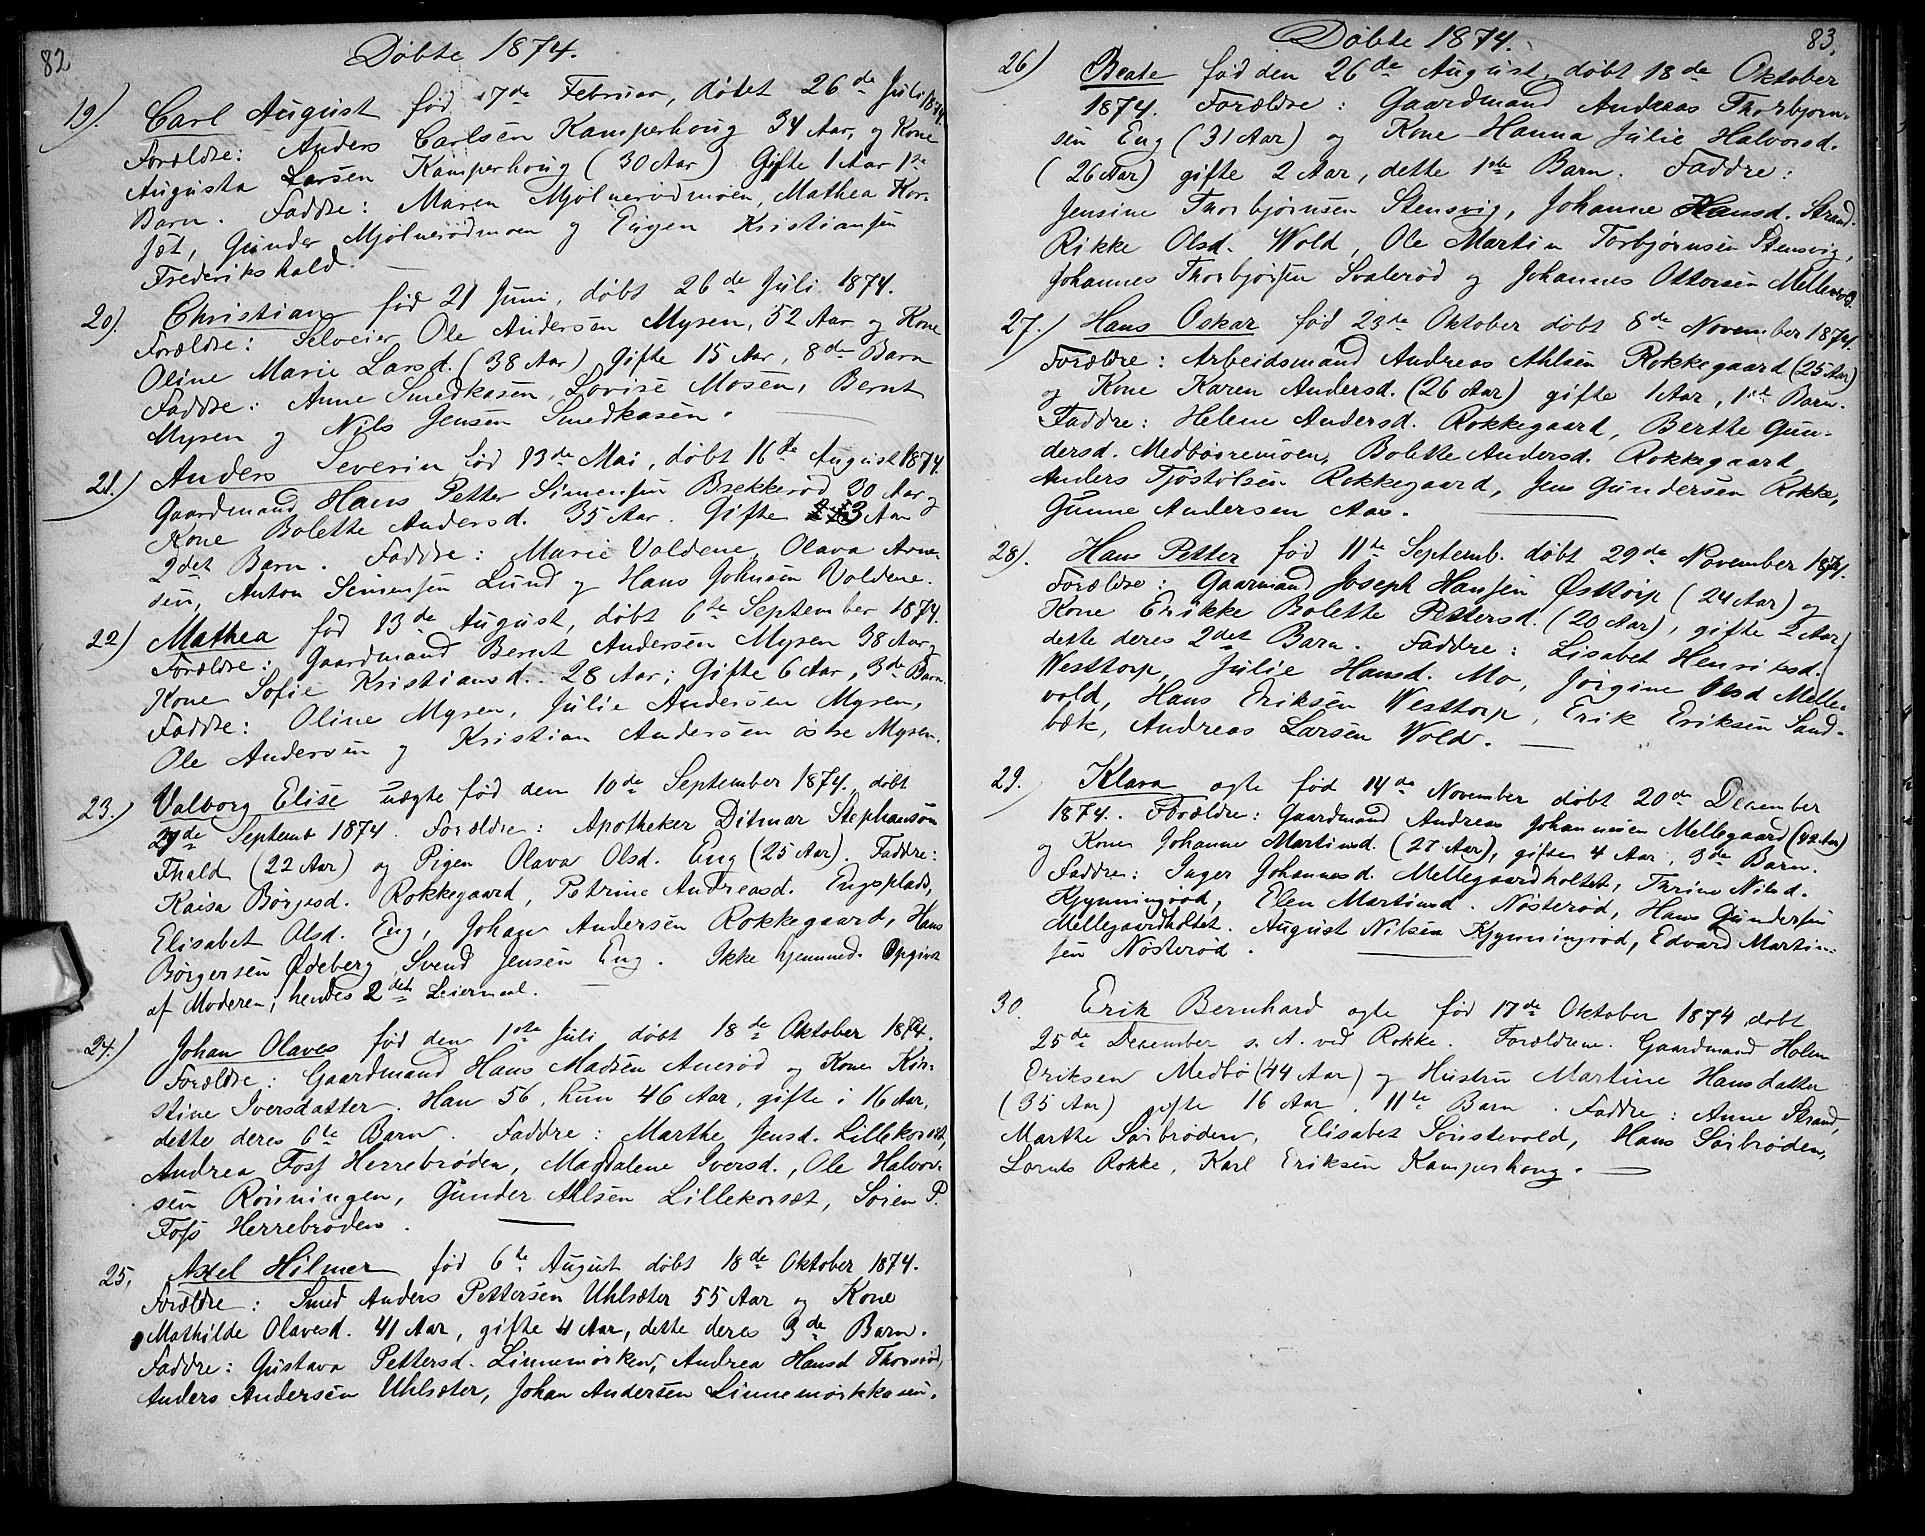 82
Döbte 1874.
19). Carl August föd 17de Februar, döbt 26de Juli 1874.
Forældre: Anders Carlsen Kamperhoug 34 Aar, og Kone
Augusta Larsen Kamperhoug (30 Aar) Gifte 1 Aar 1ste
Barn. Faddre: Maren Mjölnerödmoen, Mathea Kor-
sæt, Gunder Mjölnerödmoen og Eugen Kristiansen
Frederikshald.
20). Christian föd 21 Juni, döbt 26de Juli 1874.
Forældre: Selveier Ole Andersen Mysen, 52 Aar og Kone
Oline Marie Larsd. (38 Aar) Gifte 15 Aar, 8de Barn
Faddre: Anne Smedkasen, Lovise Mosen, Bernt
Mysen og Nils Jensen Smedkasen.
21.) Anders Severin föd 13de Mai, döbt 16de August 1874.
Gaardmand Hans Petter Simensen Brekkeröd 30 Aar og
Kone Bolette Andersd. 35 Aar. Gifte 3 Aar
2det Barn. Faddre: Marie Voldene, Olava Arne-
sen, Anton Simensen Lund og Hans Johnsen Voldene.
22) Mathea föd 13de August, döbt 6te September 1874.
Forældre: Gaardmand Bernt Andersen Mysen 38 Aar,
Kone Sofie Kristiansd. 28 Aar; Gifte 6 Aar, 3de Barn.
Faddre: Oline Mysen, Julie Andersen Mysen,
Ole Andersen og Kristian Andersen östre Mysen.
23.) Valborg Elise uægte föd den 10de September 1874, döbt
27de Septemb 1874. Forældre: Apotheker Ditmar Stephansen
Fhald (22 Aar) og Pigen Olava Olsd. Eng (25 Aar). Faddre:
Kaisa Börjesd. Rokkegaard, Petrine Andreasd. Engsplads,
Elisabet Olsd. Eng, Johan Andersen Rokkegaard, Hans
Börgersen Ödeberg, Svend Jensen Eng. Ikke hjemmed. Opgivet
af Moderen; hendes 2det Leiermaal.
24.) Johan Olaves föd den 1ste Juli döbt 18de Oktober 1874.
Forældre: Gaardmand Hans Madsen Aueröd og Kone Kir-
stine Iversdatter. Han 56, hun 46 Aar, gifte i 16 Aar,
dette deres 6te Barn. Faddre: Marthe Jensd. Lillekorsæt,
Andrea Foss Herrebröden, Magdalene Iversd., Ole Halvor-
sen Rönningen, Gunder Ahlsen Lillekorsæt, Sören P.
Foss Herrebröden.
25. Axel Hilmer föd 6te August döbt 18de Oktober 1874.
Forældre: Smed Anders Pettersen Uhlsæter 55 Aar og Kone
Mathilde Olavesd. 41 Aar, gifte 4 Aar, dette deres 3de Barn.
Faddre: Gustava Pettersd. Linnemörken, Andrea Hansd
Anders Andersen Uhlsæter, Johan Andersen Linnemörkkasen.
Döbte 1874.
83.
26) Beate föd den 26de August, döbt 18de Oktober
1874. Forældre: Gaardmand Andreas Thorbjörn-
sen Eng (31 Aar) og Kone Hanna Julie Halvorsd.
(26 Aar) gifte 2 Aar, dette 1ste Barn. Faddre:
Jensine Thorbjörnsen Stensvig, Johanne Hansd. Strand.
Rikke Olsd. Wold, Ole Martin Torbjörnsen Stensvig,
Johannes Thorbjörsen Svaleröd og Johannes Ottersen Mellewold.
27.) Hans Oskar föd 23de Oktober döbt 8de November 1874.
Forældre: Arbeidsmand Andreas Ahlsen Rokkegaard (25 Aar)
og Kone Karen Andersd. (26 Aar) gifte 1 Aar, 1ste Barn.
Faddre: Helene Andersd. Rokkegaard, Berthe Gun-
dersd. Medböiremoen, Bolette Andersd. Rokkegaard,
Anders Tjöstolsen Rokkegaard, Jens Gundersen Rokke,
Gunne Andersen Aas.
28). Hans Petter föd 11te Septemb. döbt 29de November 1874.
Forældre: Gaarmand Joseph Hansen Östtorp (24 Aar) og
Kone Erikke Bolette Pettersd. (20 Aar), gifte 2 Aar,
dette deres 2det Barn. Faddre: Lisabet Henriksd.
Westtorp, Julie Hansd. Mo, Jörgine Olsd Melle-
vold, Hans Eriksen Westtorp, Erik Eriksen Sand-
bæk, Andreas Larsen Wold.
29. Klara ægte föd 14de November döbt 20de December
1874. Forældre: Gaardmand Andreas Johannesen Mellegaard (42 Aar)
og Kone Johanne Martinsd. (27 Aar), gifte 4 Aar, 3de Barn.
Faddre: Inger Johannesd. Mellegaardholtet, Thrine Nilsd.
Kjynningröd, Elen Martinsd. Nösteröd, Hans Gundersen
Mellegaardholtet. August Nilsen Kjynningröd, Edvard Martin-
sen Nösteröd.
30. Erik Bernhard ægte föd 17de Oktober 1874 döbt
25de December s. A. ved Rokke. Forældrene. Gaardmand Holm
Eriksen Medbö (44 Aar) og Hustru Martine Hansdatter
(35 Aar) gifte 16 Aar. 11te Barn. Faddre: Anne Strand,
Marthe Sörbröden, Elisabet Sönstevold, Hans Sörbröden,
Lornts Rokke, Karl Eriksen Kamperhoug.